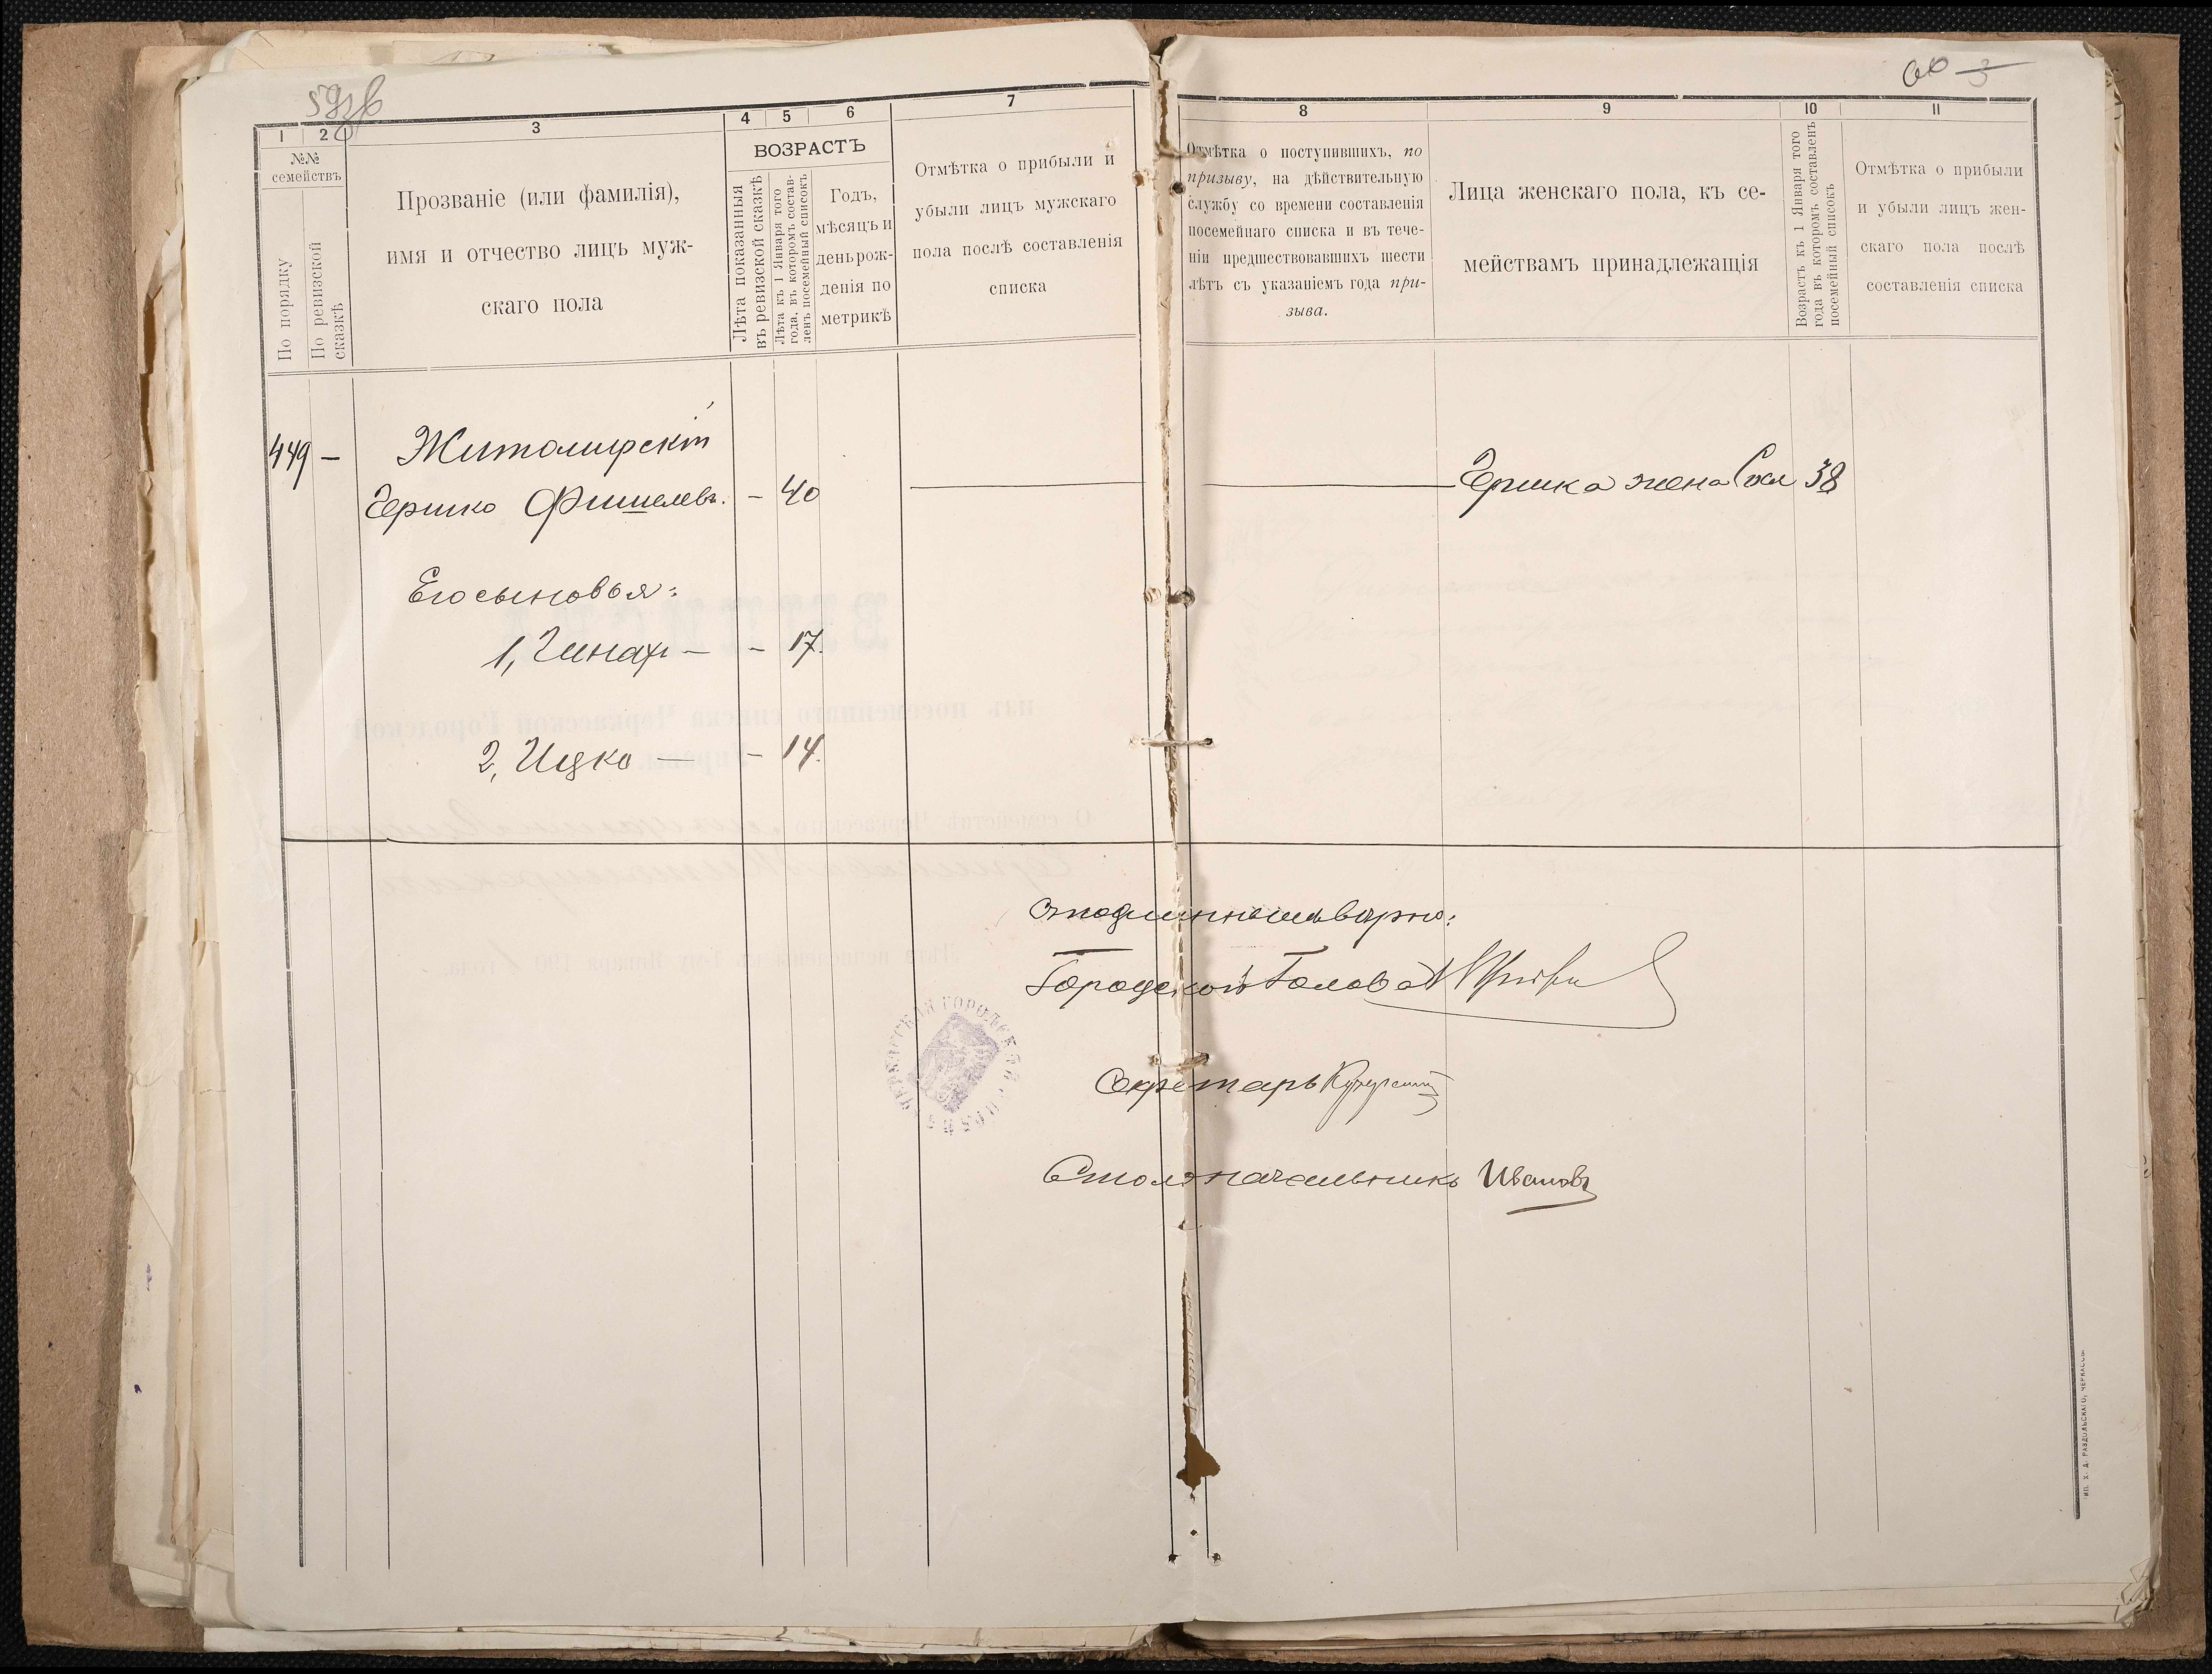 59
1
2
3
4
5
6
7
№№ семействъ
По порядку
По ревизской сказкѣ
Прозваніе (или фамилія),
имя и отчество лицъ муж-
скаго пола
ВОЗРАСТЪ
Лѣта показанныя
въ ревизской сказкѣ
Лѣта къ 1 Января того
года, въ которомъ состав-
ленъ посемейный списокъ
Годъ,
мѣсяцъ и
день рож-
денія по
метрикѣ
Отмѣтка о прибыли и
убыли лицъ мужскаго
пола послѣ составленія
списка
449 — Житомирскій
Гершко Фишелевъ. — 40
Его сыновья:
1, Пинах — — 17.
2, Ицко — — 14.
60 3
8
9
10
11
Отмѣтка о поступившихъ, по
призыву, на дѣйствительную
службу со времени составленія
посемейнаго списка и въ тече-
ніи предшествовавшихъ шести
лѣтъ съ указаніемъ года при-
зыва.
Лица женскаго пола, къ се-
мействамъ принадлежащія
Возрастъ къ 1 Января того
года въ которомъ составленъ
посемейный списокъ
Отмѣтка о прибыли
и убыли лицъ жен-
скаго пола послѣ
составленія списка
Гершка жена 38
Съ подлиннымъ вѣрно:
Городской Голова
Секретарь
Столоначальникъ Ивановъ
ЧЕРКАССКАЯ ГОРОДСКАЯ УПРАВА
Х. Д. РАЗДОЛЬСКАГО, ЧЕРКАССЫ.